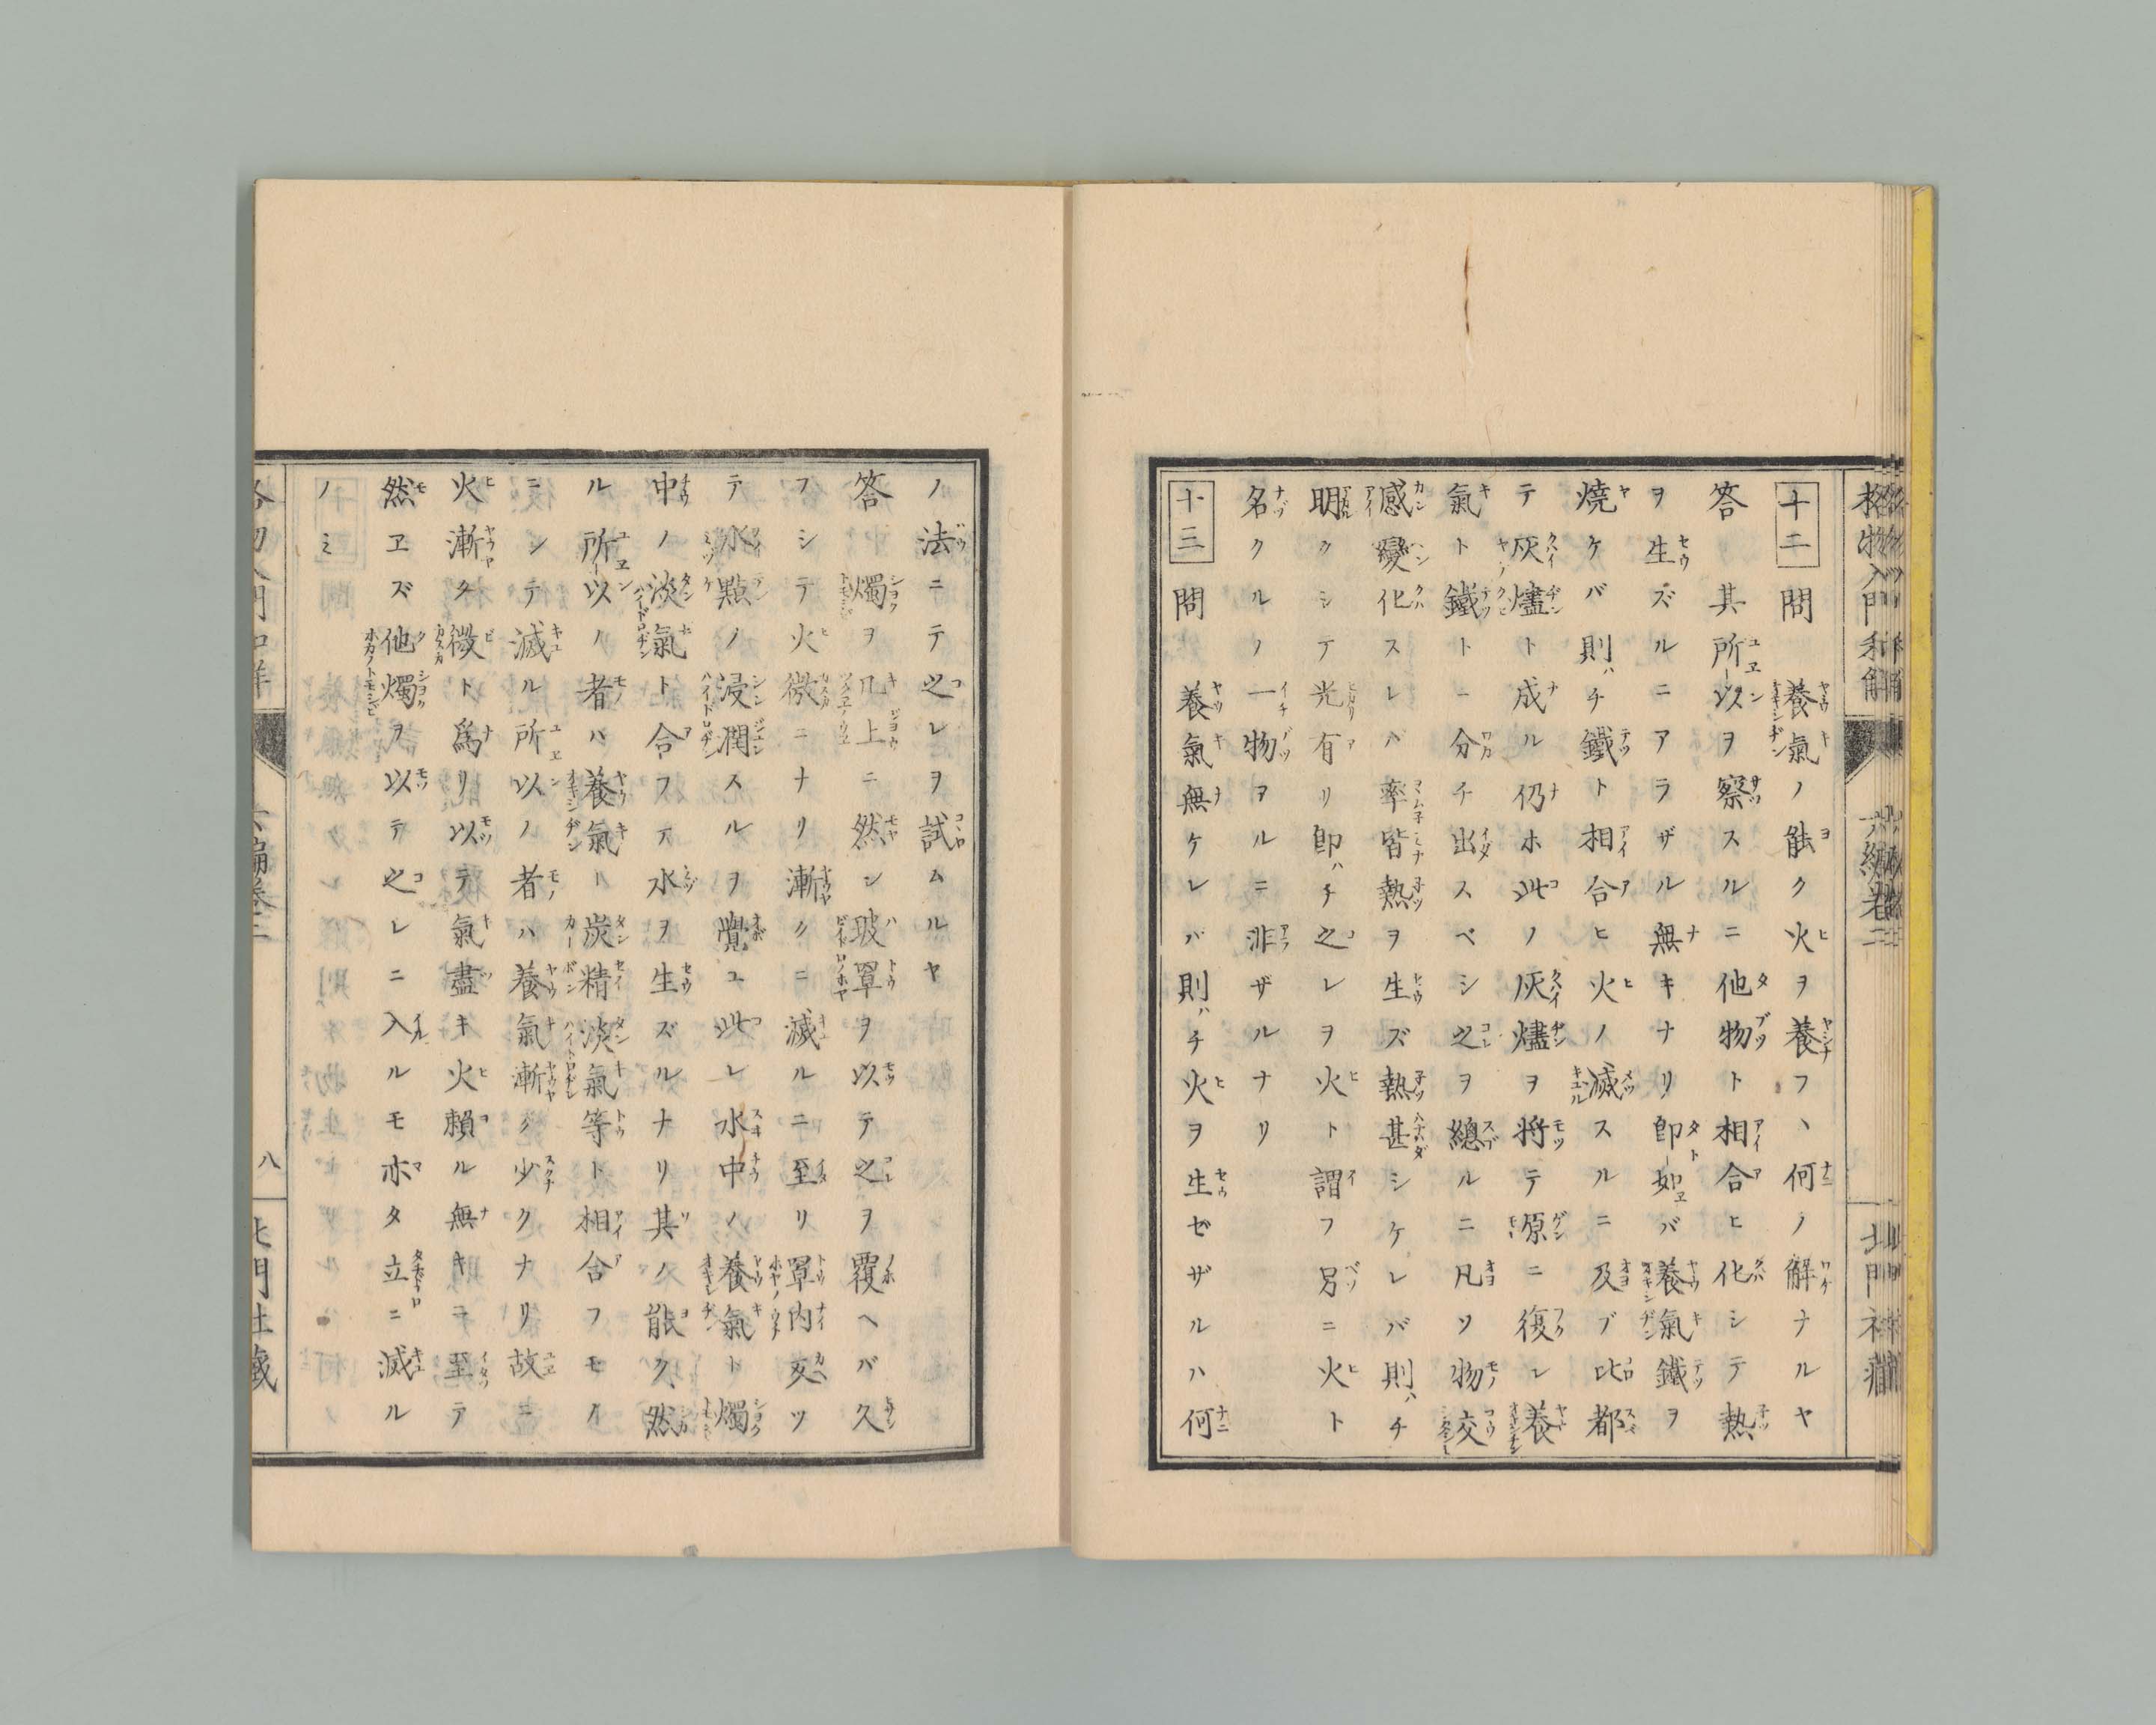 十二 問 養氣ノ能ク火ヲ養フヽ何ノ解ナルヤ
答 其所以ヲ察スルニ他物ト相合ヒ化シテ熱
ヲ生ズルニアラザル無キナリ即如バ養氣鐵ヲ
燒ケバ則チ鐵ト相合ヒ火ノ滅スルニ及ブ比都
テ灰燼ト成ル仍ホ此ノ灰燼ヲ將テ原ニ復シ養
氣ト鐵トニ分チ出スベシ之ヲ總ルニ凡ソ物交
感變化スレバ率皆熱ヲ生ズ熱甚シケレバ則チ
明クシテ光有リ即チ之レヲ火ト謂フ另ニ火ト
名クルノ一物ヲルニ非ザルナリ
十三 問 養氣無ケレバ則チ火ヲ生ゼザルハ何
ノ法ニテ之レヲ試ムルヤ
答 燭ヲ几上ニ然シ玻罩ヲ以テ之ヲ覆ヘバ久
フシテ火微ニナリ漸クニ滅ルニ至リ罩内反ツ
テ水點ノ浸潤スルヲ覺ユ此レ水中ノ養氣ト燭
中ノ淡氣ト合フテ水ヲ生ズルナリ其ノ能ク然
ル所以ノ者バ養氣ト炭精淡氣等ト相合フモノ
ニシテ滅ル所以ノ者ハ養氣漸ク少クナリ故ニ
火漸ク微ト爲リ以テ氣盡キ火賴ル無キニ至テ
然ヱズ他燭ヲ以テ之レニ入ルモ亦タ立ニ滅ル
ノミ
格物入門和解
八
北門社藏